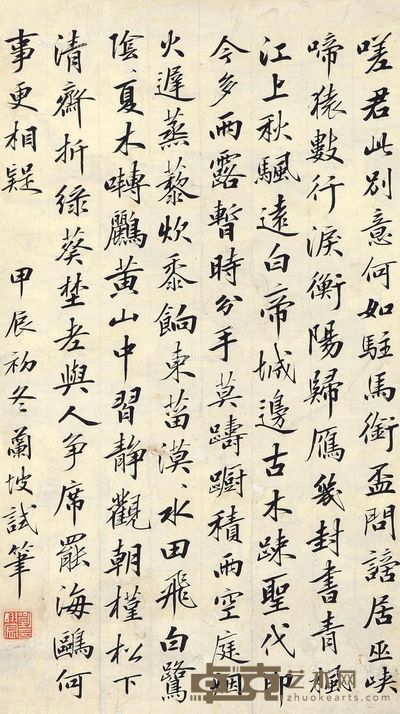 嗟君此別意何如駐馬銜盃問謫居巫峽
啼猿數行淚衡陽歸雁幾封書青楓
江上秋颿遠白帝城邊古木踈聖代即
今多雨露暫時分手莫躊躕積雨空庭烟
火遲蒸藜炊黍餉東菑漠〻水田飛白鷺
陰〻夏木囀鸝黃山中習靜觀朝槿松下
清齋折綠葵埜老與人爭席罷海鷗何
事更相疑 甲辰初冬蘭坡試筆
艺术网
www.zhuokearts.com